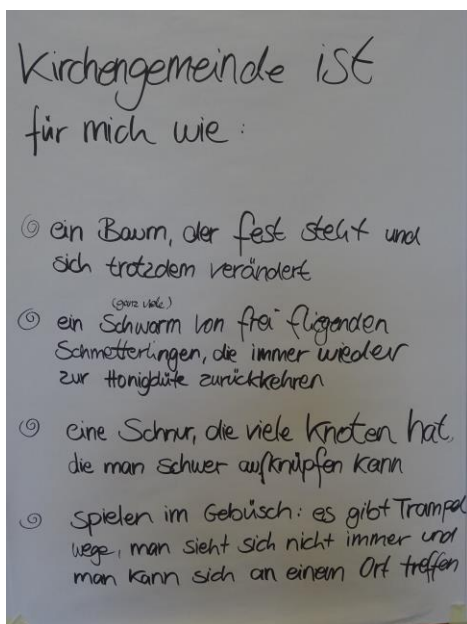 Kirchengemeinde ist
für mich wie:
ein Baum, der fest steht und
sich trotzdem verändert
(ganz viele)
ein Schwarm von frei fliegenden
Schmetterlingen, die immer wieder
zur Honigblüte zurückkehren
eine Schnur, die viele Knoten hat,
die man schwer aufknüpfen kann
spielen im Gebüsch: es gibt Trampel
wege, man sieht sich nicht immer und
man kann sich an einem Ort treffen